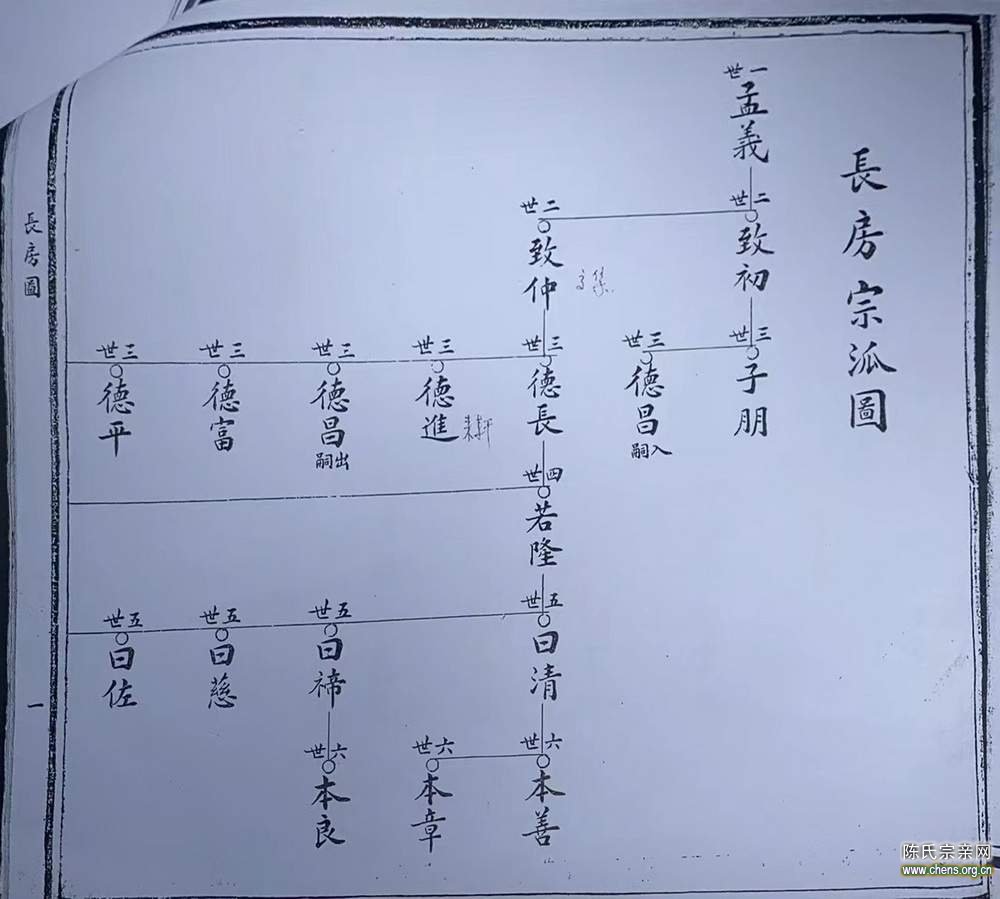 長房宗派圖
一世
孟義
二世
致初
二世
致仲
三世
子朋
三世
德昌
入嗣
三世
德長
三世
德進
三世
德昌
出嗣
三世
德富
三世
德平
四世
若隆
五世
曰清
五世
曰禘
五世
曰慈
五世
曰佐
六世
本善
六世
本章
六世
本良
長房圖
一
陈氏宗亲网
www.chens.org.cn